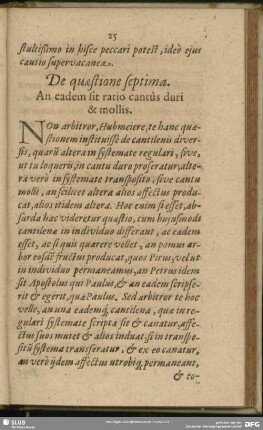 25
stultißimo in hisce peccari potest, ideò ejus
cautio supervacanea.
De quæstione septima.
An eadem sit ratio cantûs duri
& mollis.
NOn arbitror, Hubmeiere, te hanc quæ-
stionem instituisse de cantilenis diver-
sis, quarū altera in systemate regulari, sive,
ut tu loquerū, in cantu duro proferatur, alte-
ra verò in systemate transposito, sive cantu
molli, an scilicet altera alios affectus produ-
cat, alios itidem altera. Hoc enim si esset, ab-
surda hæc videretur quæstio, cum hujusmodi
cantilena in individuo differant, ac eadem
esset, ac si quis quærere vellet, an pomus ar-
bor eosdē fructus producat, quos Pirus, vel ut
in individuo permaneamus, an Petrus idem
sit Apostolus qui Paulus, & an eadem scripse-
rit & egerit, quæ Paulus, Sed arbitror te hoc
velle, an una eademq; cantilena, quæ in re-
gulari systemate scripta sit & canatur, affe-
ctus suos mutet & alios induat, si in transpo-
sitū systema transferatur, & ex eo canatur,
an verò ijdem affectus utrobiq; permaneant,
& to-
SLUB
DFG